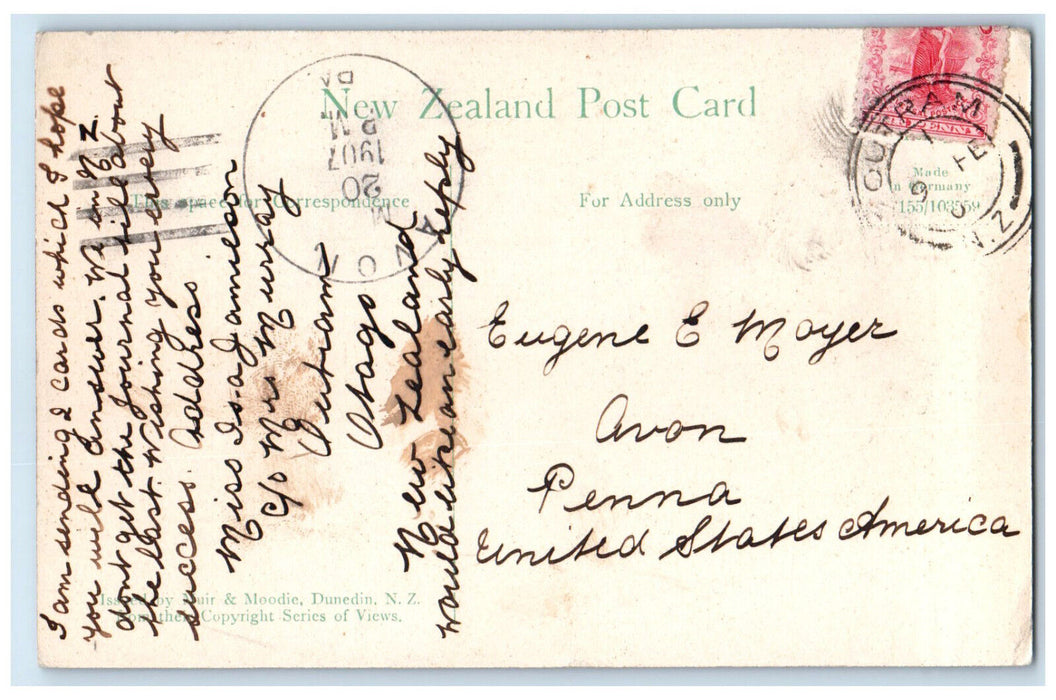 New Zealand Post Card
This space for Correspondence
For Address only
Made
in Germany
155/103559
OUTRAM
N.Z.
PENNY
AVON
PA
MAR
20
5 PM
1907
I am sending 2 cards which I hope
you will answer. We in N Z.
dont get the journal till about
the last. Wishing you every
success. Address
Miss Isa Jamieson
c/o Mrs Murray
Outram
Otago
New Zealand
would like an early reply
Eugene E Moyer
Avon
Penna
United States America
Issued by Muir & Moodie, Dunedin, N. Z.
from their Copyright Series of Views.